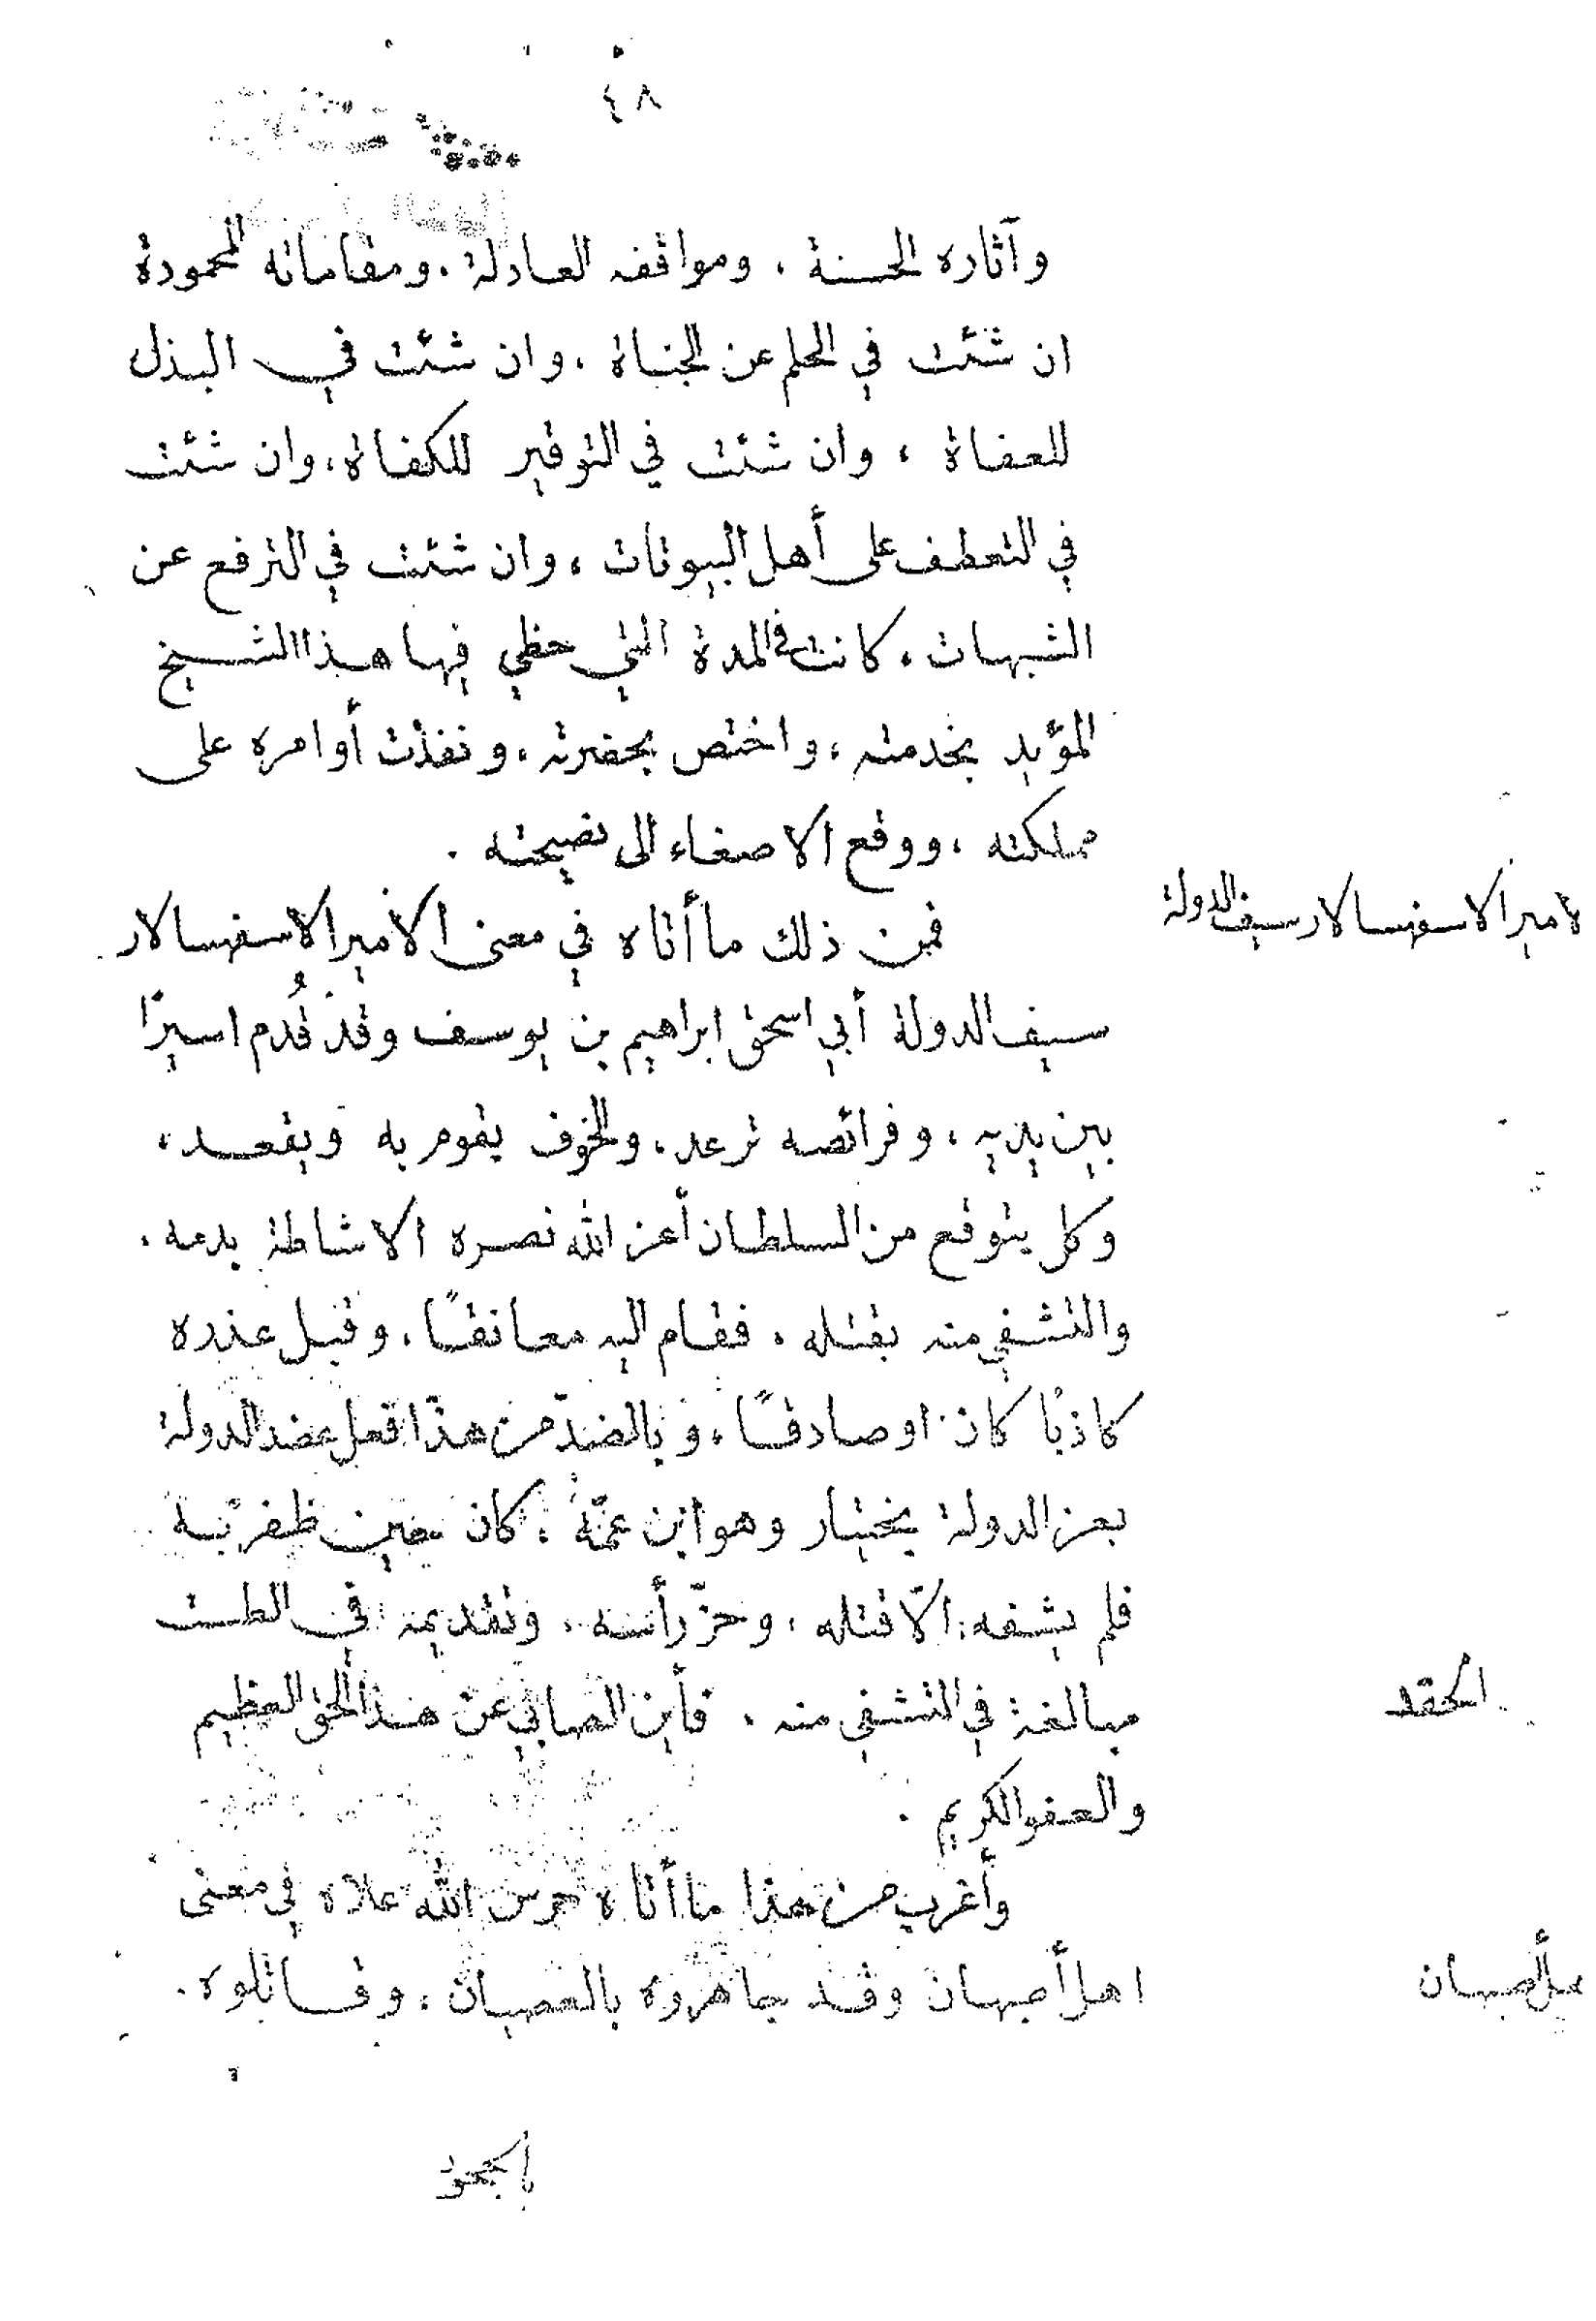 ٤٨
وآثاره الحسنة ، ومواقفه العادلة ، ومقاماته المحمودة
ان شئت في الحلم عن الجناة ، وان شئت في البذل
للعفاة ، وان شئت في التوفير للكفاة ، وان شئت
في التعطف على أهل البيوتات ، وان شئت في الترفع عن
الشبهات ، كانت في المدة التي حظي فيها هذا الشيخ
المؤيد بخدمته ، واختص بحضرته ، ونفذت أوامره على
مملكته ، ووقع الاصغاء الى نصيحته .
الامير الاسفهسالار سيف الدولة
فمن ذلك ما أتاه في معنى الأمير الاسفهسالار
سيف الدولة أبي اسحق ابراهيم بن يوسف وقد قُدم اسيرًا
بين يديه ، وفرائصه ترعد ، والخوف يقوم به ويقعد ،
وكل يتوقع من السلطان أعز الله نصره الاشاطة بدمه ،
والتشفي منه بقتله ، فقام اليه معانقًا ، وقبل عذره
كاذبًا كان او صادقًا ، وبالضدّ من هذا فعل عضد الدولة
بعز الدولة بختيار وهو ابن عمّه ، كان حين ظفر به
فلم يشفه الّا قتله ، وحزّ رأسه ، وتقديمه في الطست
مبالغة في التشفي منه . فأين الصابي عن هذا الحق العظيم
الحقد
والعفو الكريم .
وأغرب من هذا ما أتاه حرس الله علاه في معنى
اهل أصبهان وقد جاهروه بالعصيان ، وقاتلوه .
اهل أصبهان